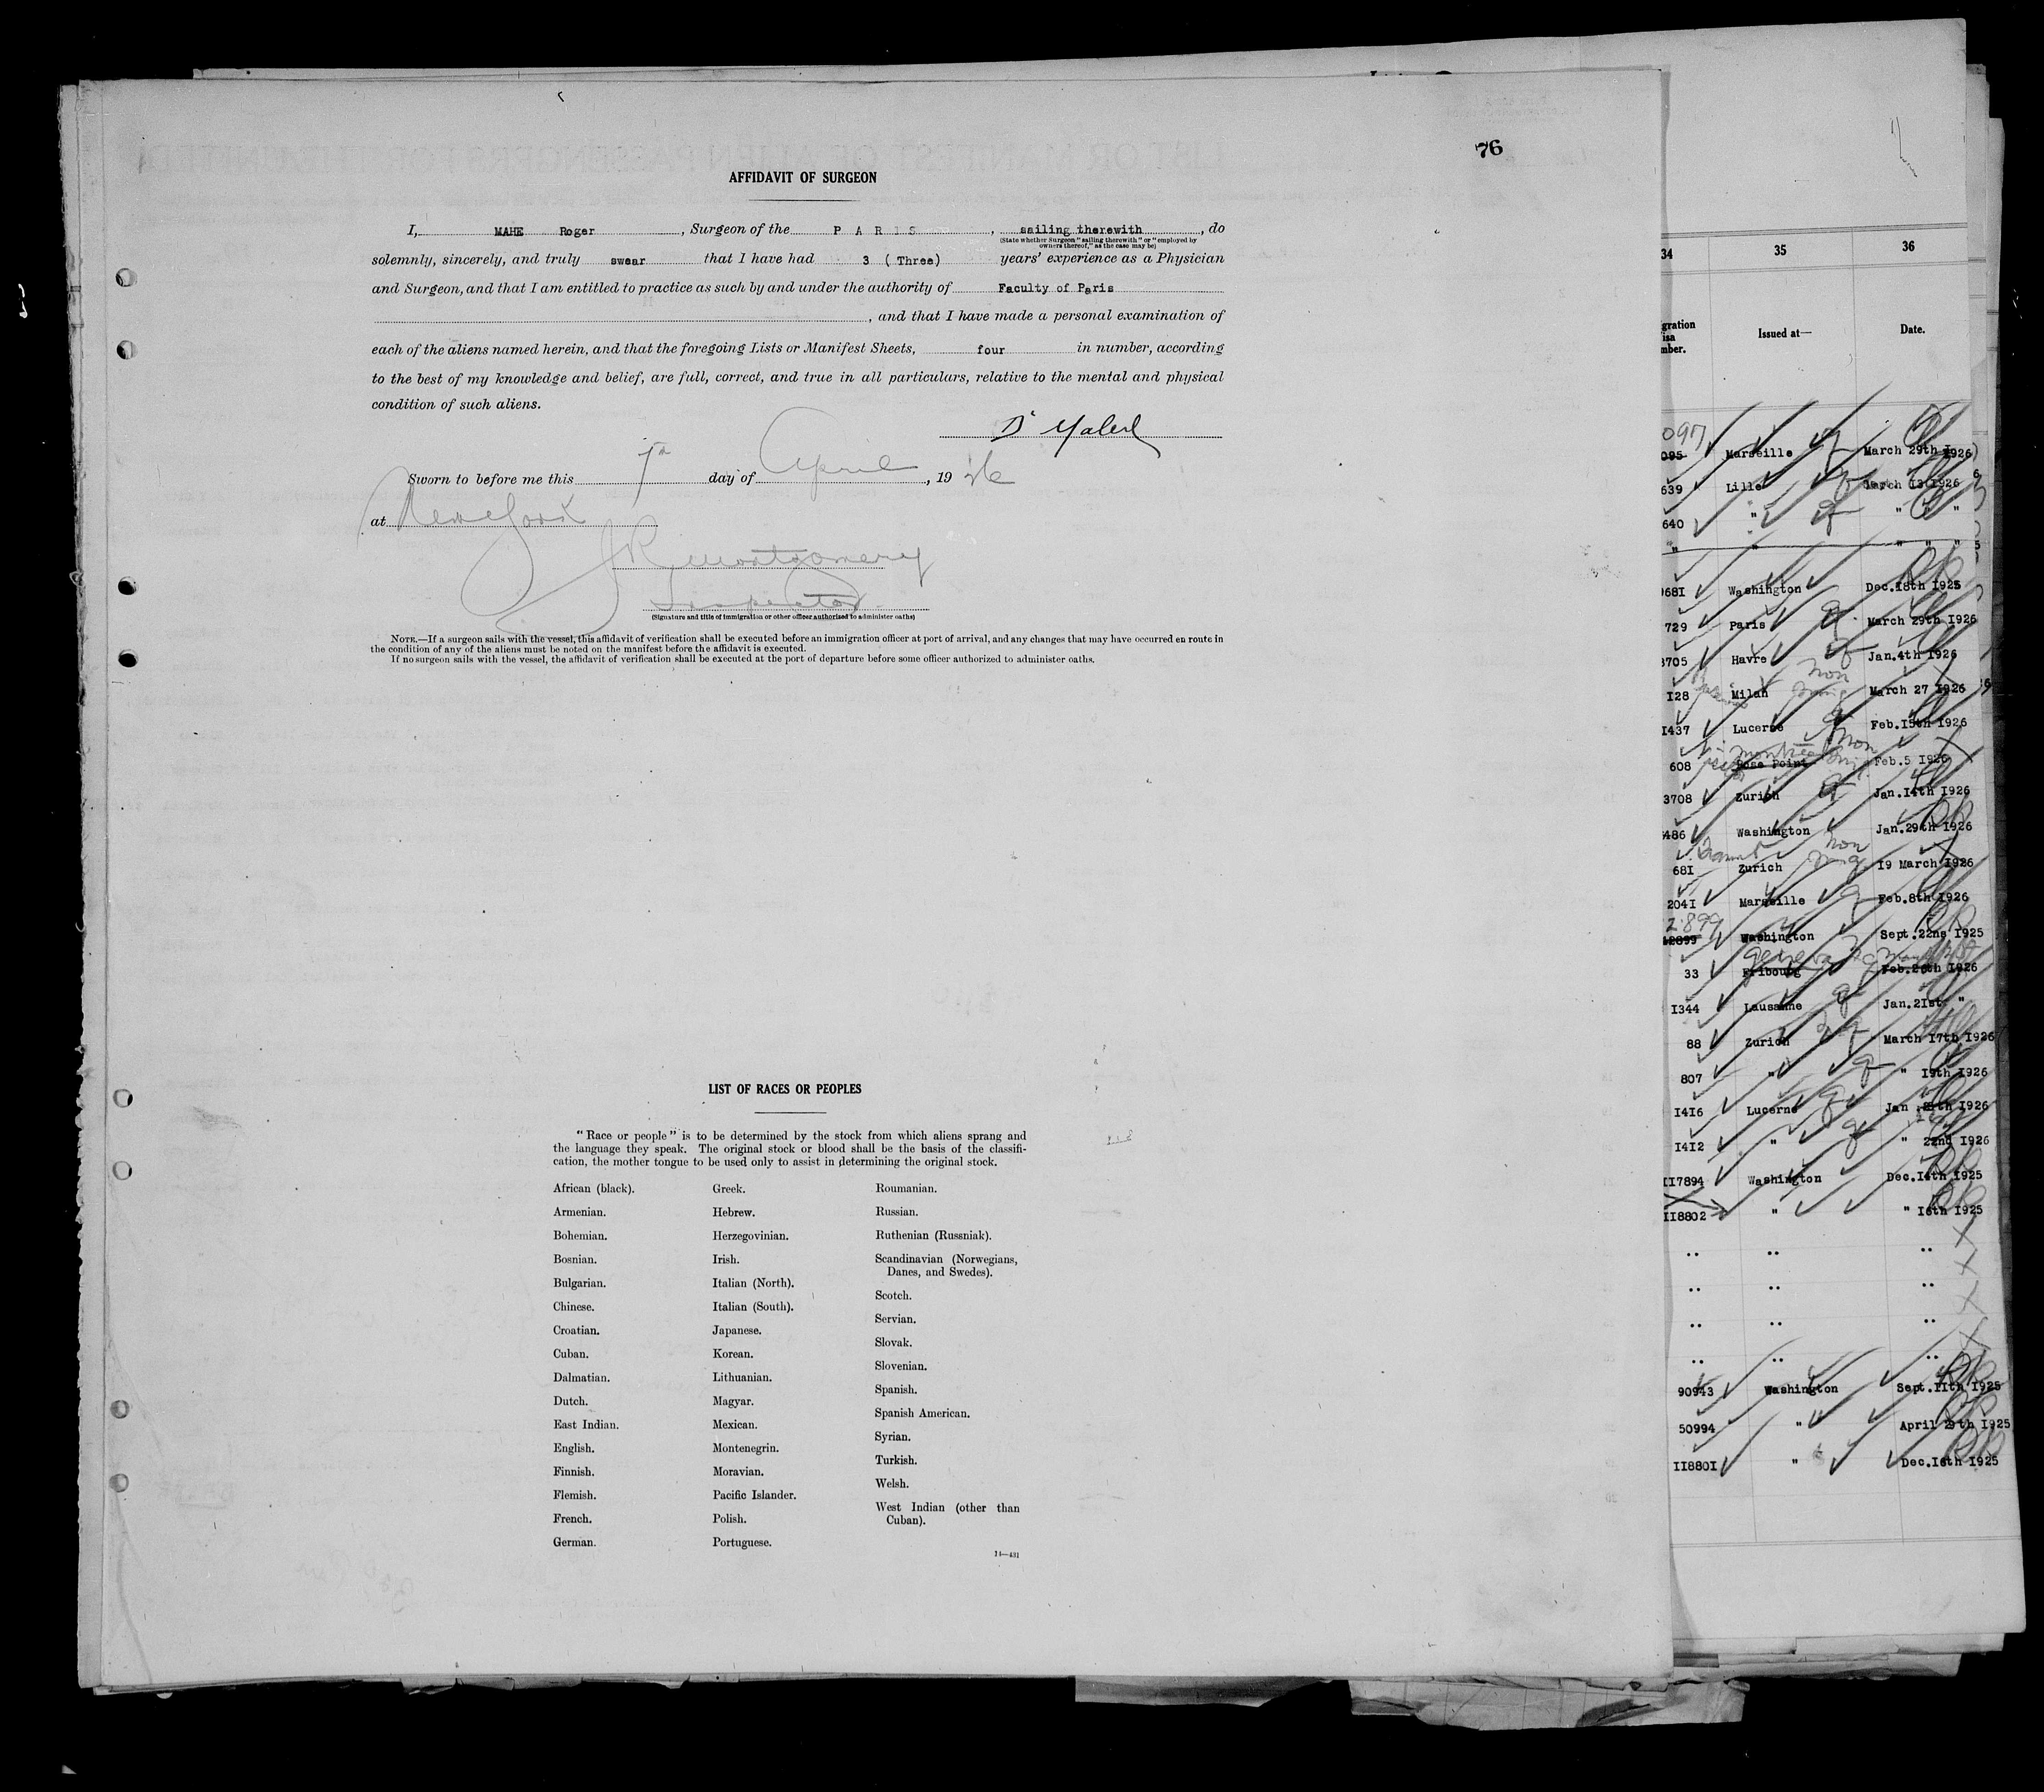 76
AFFIDAVIT OF SURGEON
I, MAHE Roger , Surgeon of the P A R I S , sailing therewith , do
(State whether Surgeon "sailing therewith" or "employed by
owners thereof," as the case may be)
solemnly, sincerely, and truly swear that I have had 3 ( Three) years' experience as a Physician
and Surgeon, and that I am entitled to practice as such by and under the authority of Faculty of Paris
, and that I have made a personal examination of
each of the aliens named herein, and that the foregoing Lists or Manifest Sheets, four in number, according
to the best of my knowledge and belief, are full, correct, and true in all particulars, relative to the mental and physical
condition of such aliens.
Sworn to before me this 7th day of April , 1926
at New York
JR Montgomery
Inspector
(Signature and title of immigration or other officer authorized to administer oaths)
NOTE.—If a surgeon sails with the vessel, this affidavit of verification shall be executed before an immigration officer at port of arrival, and any changes that may have occurred en route in
the condition of any of the aliens must be noted on the manifest before the affidavit is executed.
If no surgeon sails with the vessel, the affidavit of verification shall be executed at the port of departure before some officer authorized to administer oaths.
LIST OF RACES OR PEOPLES
"Race or people" is to be determined by the stock from which aliens sprang and
the language they speak. The original stock or blood shall be the basis of the classifi-
cation, the mother tongue to be used only to assist in determining the original stock.
African (black).
Armenian.
Bohemian.
Bosnian.
Bulgarian.
Chinese.
Croatian.
Cuban.
Dalmatian.
Dutch.
East Indian.
English.
Finnish.
Flemish.
French.
German.
Greek.
Hebrew.
Herzegovinian.
Irish.
Italian (North).
Italian (South).
Japanese.
Korean.
Lithuanian.
Magyar.
Mexican.
Montenegrin.
Moravian.
Pacific Islander.
Polish.
Portuguese.
Roumanian.
Russian.
Ruthenian (Russniak).
Scandinavian (Norwegians,
Danes, and Swedes).
Scotch.
Servian.
Slovak.
Slovenian.
Spanish.
Spanish American.
Syrian.
Turkish.
Welsh.
West Indian (other than
Cuban).
14—431
34 35 36
gration
isa
mber. Issued at— Date.
097
095 Marseille March 29th 1926
639 Lille March 13 1926
640 " " " "
" " " " "
681 Washington Dec.18th 1925
729 Paris March 29th 1926
3705 Havre Jan.4th 1926
128 Milan March 27 1926
1437 Lucerne Feb.15th 1926
608 Rose Point Feb.5 1926
3708 Zurich Jan.14th 1926
486 Washington Jan.29th 1926
681 Zurich 19 March 1926
2041 Marseille Feb.8th 1926
2899
12899 Washington Sept.22nd 1925
Geneva
33 Fribourg Feb.26th 1926
1344 Lausanne Jan.21st "
88 Zurich March 17th 1926
807 " " 19th 1926
1416 Lucerne Jan 1926
1412 " " 22nd 1926
117894 Washington Dec.14th 1925
118802 " " 16th 1925
90943 Washington Sept.11th 1925
50994 " April 29th 1925
118801 " Dec.16th 1925